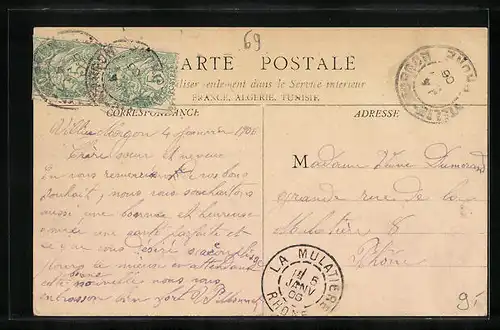 69
CARTE POSTALE
seulement dans le Service intérieur
FRANCE, ALGÉRIE, TUNISIE
CORRESPONDANCE
ADRESSE
4 Janvier 1906
Chère sœur et neveu
En vous remerciant de vos bons
souhait, nous vous souhaitons
aussi une bonne et heureuse
année une santé parfaite et
ce que vous désiré s'accomplisse
le mieux en attendant
bonne
nouvelle nous vous
embrasson bien fort
Madame Veuve Dumorand
grande rue de la
Mulatière 8
Rhône
LA MULATIERE
5
JANV
06
RHONE